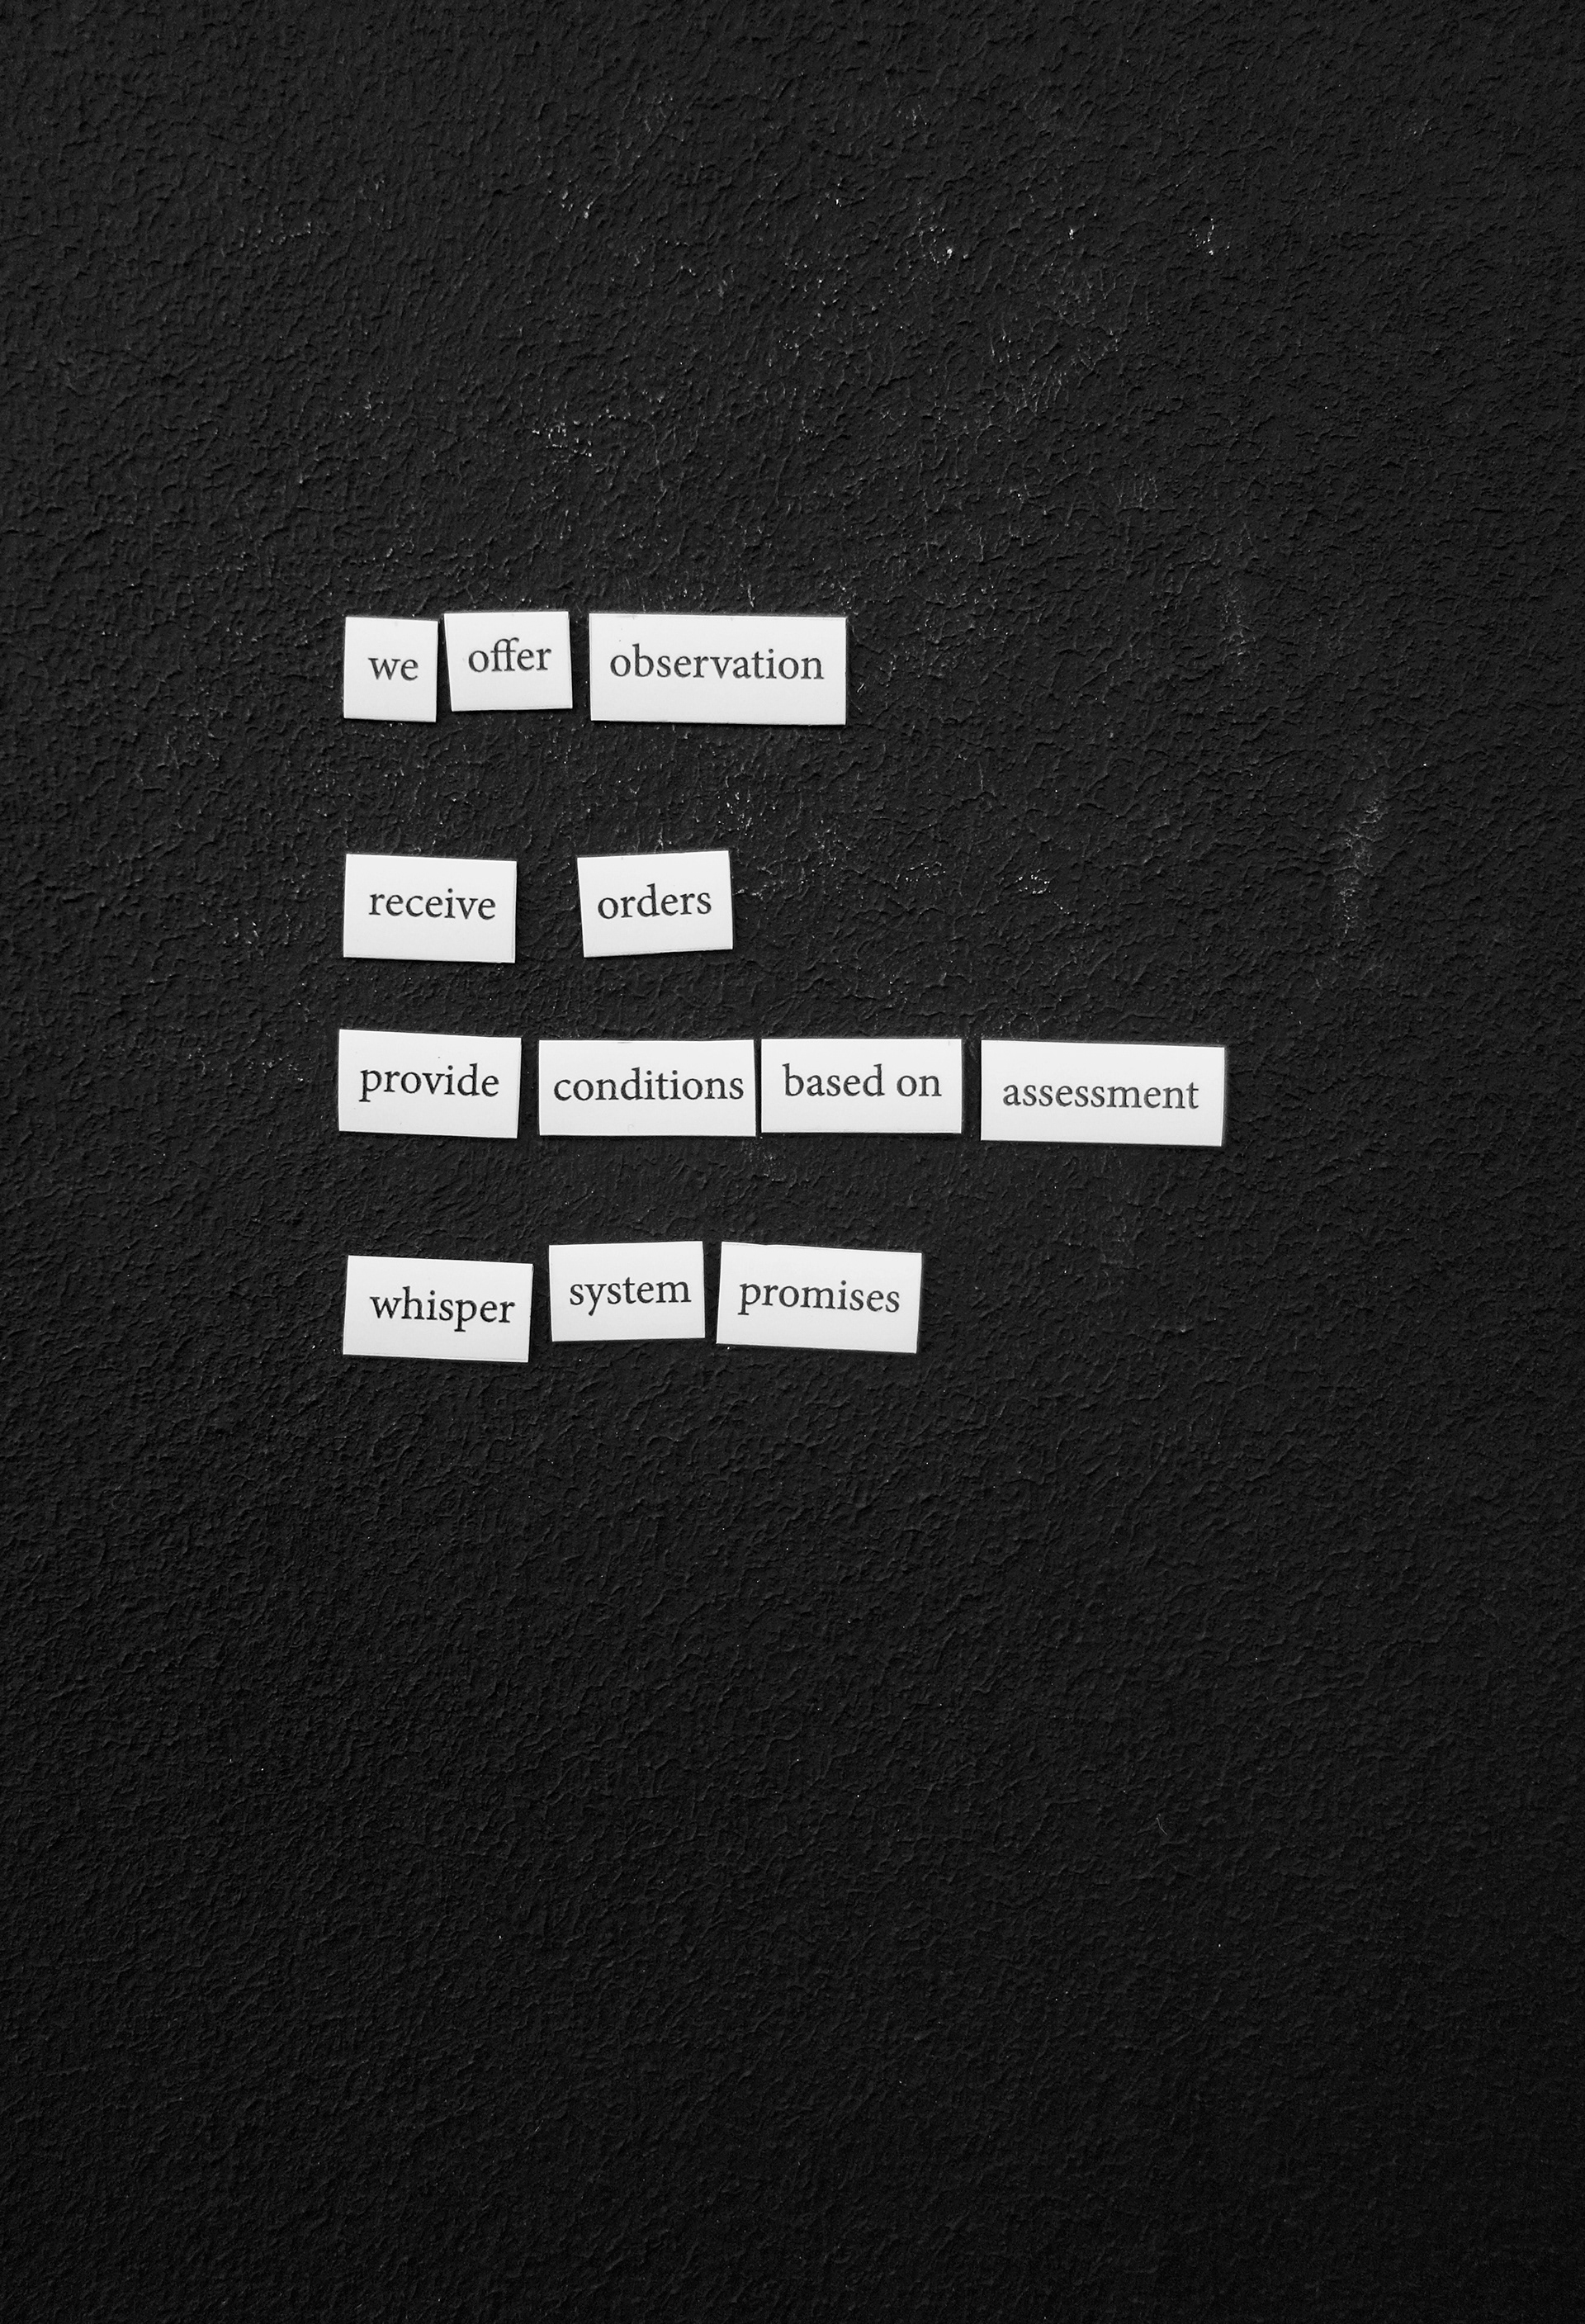 we offer observation
receive orders
provide conditions based on assessment
whisper system promises